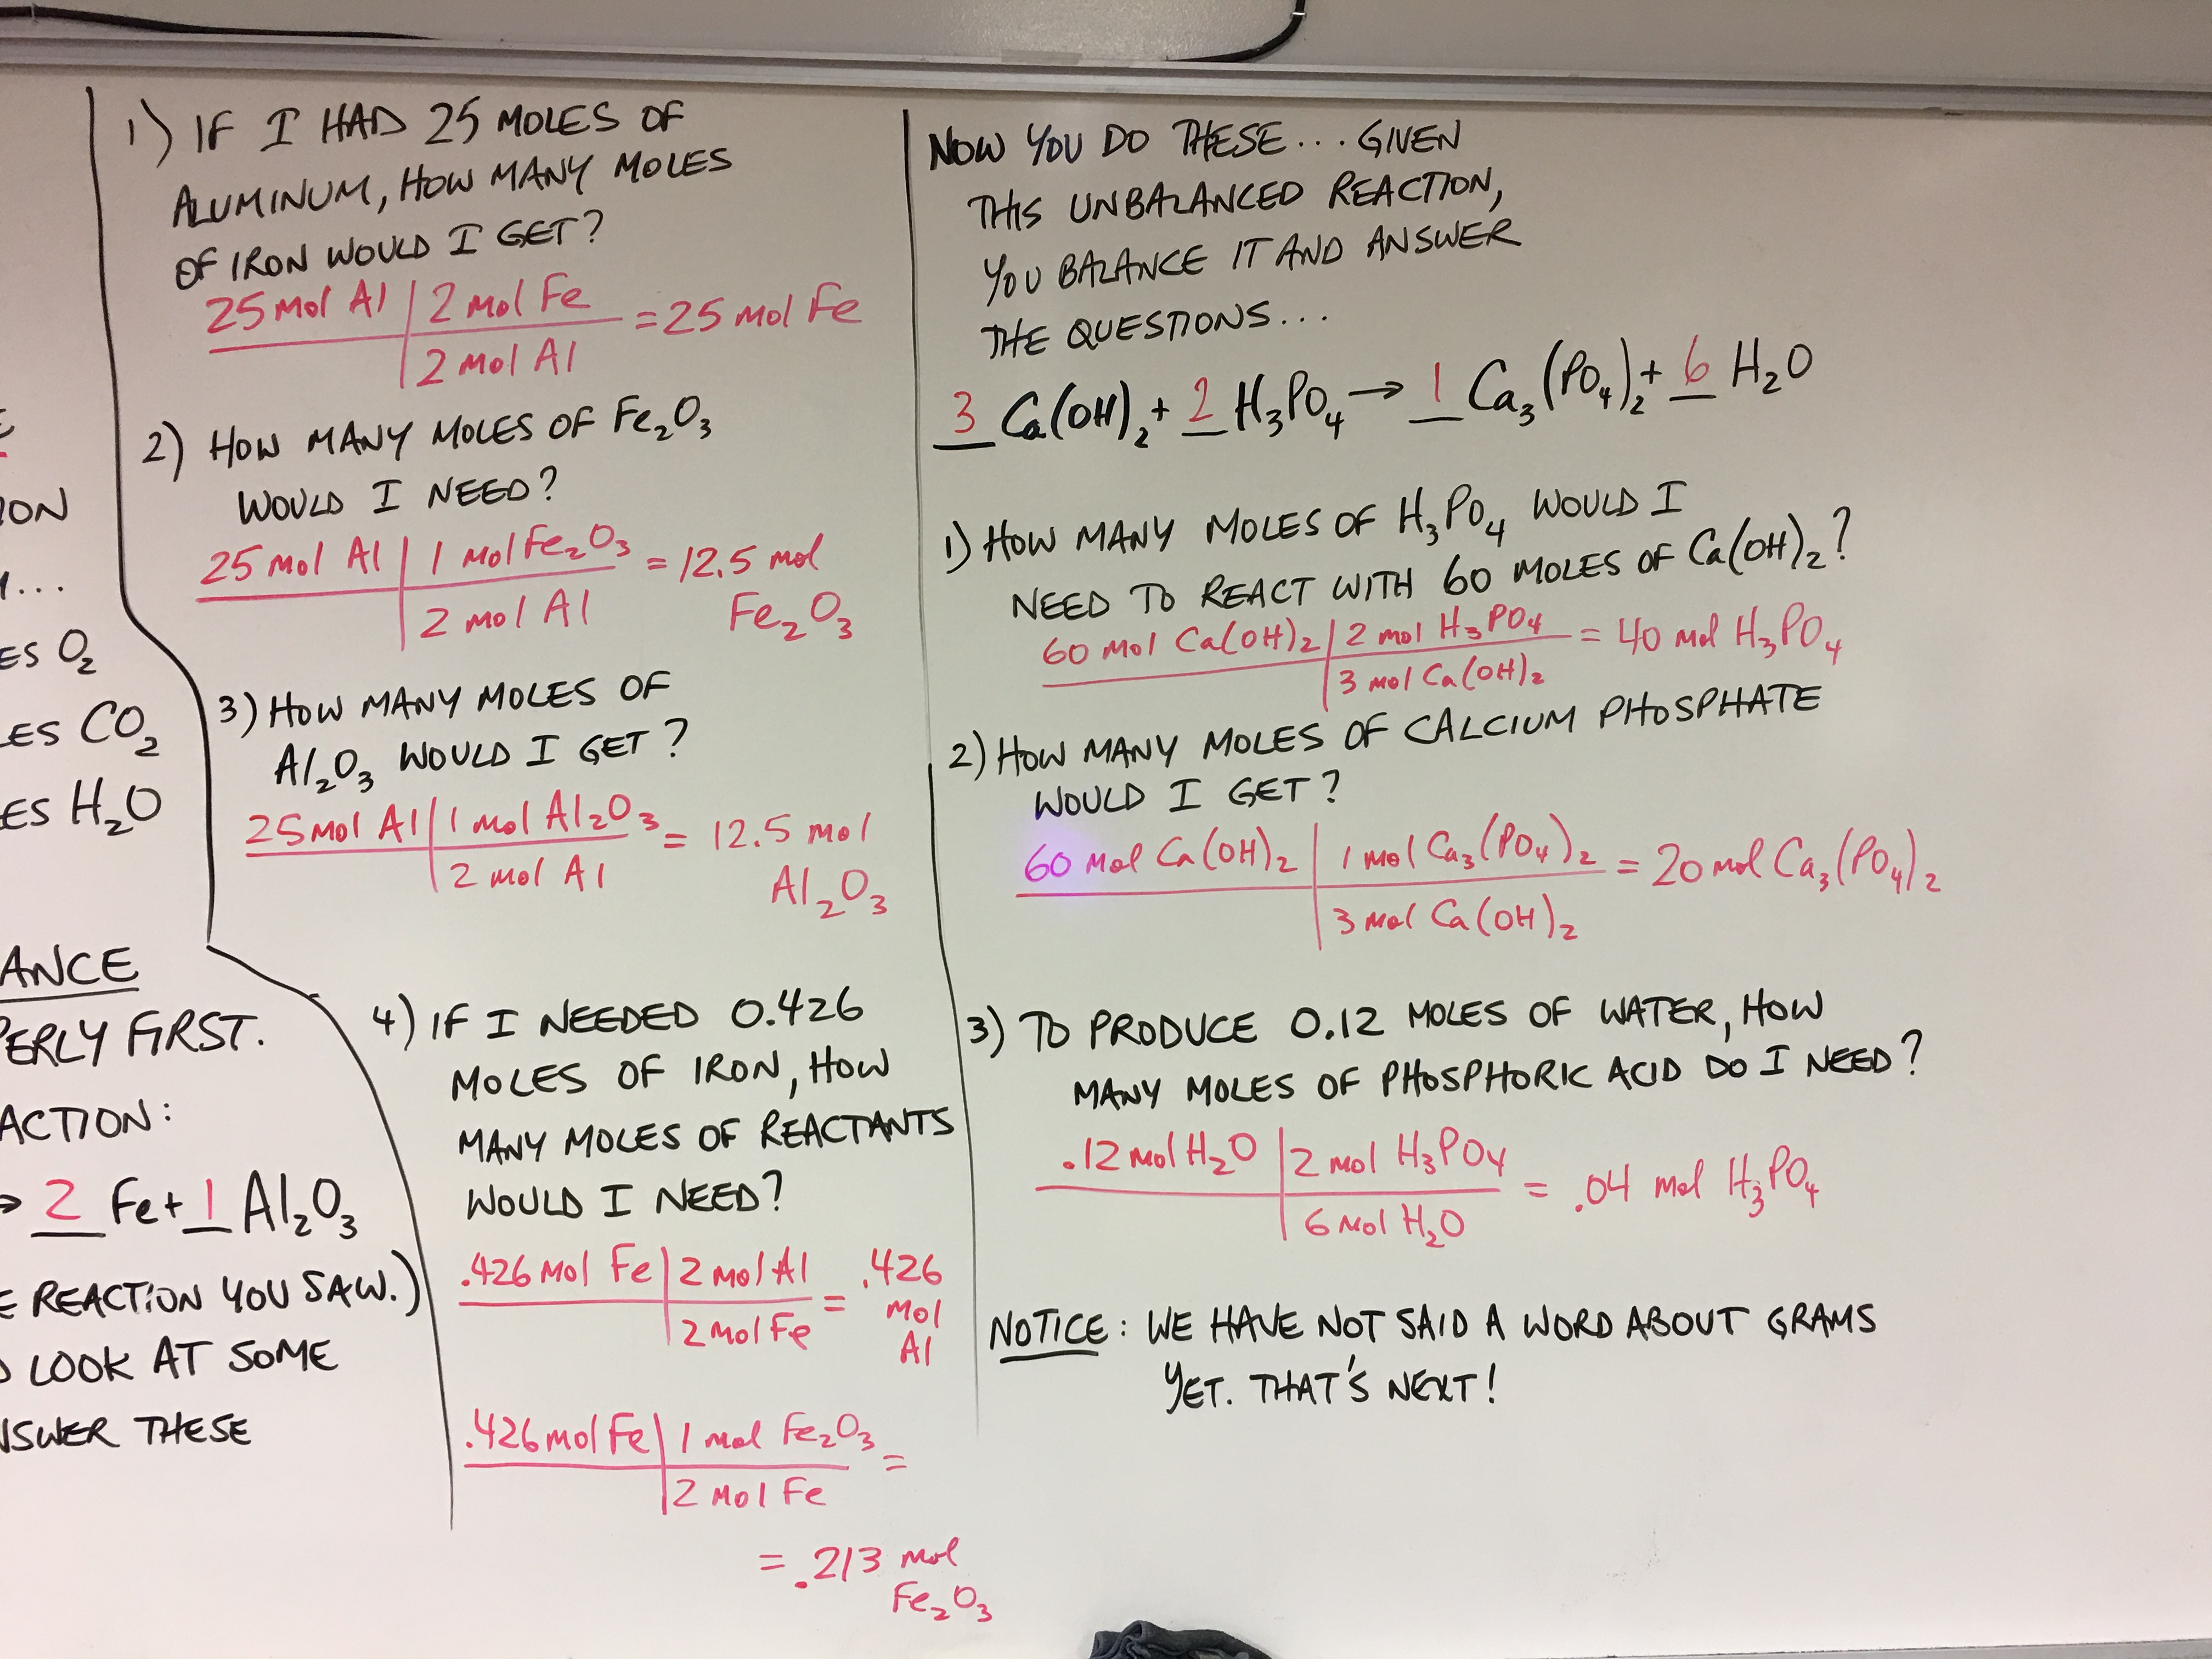 E
ION
1...
ES O₂
LES CO₂
ES H₂O
ANCE
PERLY FIRST.
ACTION:
→ 2 Fe + 1 Al₂O₃
E REACTION YOU SAW.)
O LOOK AT SOME
NSWER THESE
1) IF I HAD 25 MOLES OF
ALUMINUM, HOW MANY MOLES
OF IRON WOULD I GET?
25 mol Al | 2 mol Fe = 25 mol Fe
2 mol Al
2) HOW MANY MOLES OF Fe₂O₃
WOULD I NEED?
25 mol Al | 1 mol Fe₂O₃ = 12.5 mol
2 mol Al Fe₂O₃
3) HOW MANY MOLES OF
Al₂O₃ WOULD I GET?
25 mol Al | 1 mol Al₂O₃ = 12.5 mol
2 mol Al Al₂O₃
4) IF I NEEDED 0.426
MOLES OF IRON, HOW
MANY MOLES OF REACTANTS
WOULD I NEED?
.426 mol Fe | 2 mol Al = .426
2 mol Fe mol
Al
.426 mol Fe | 1 mol Fe₂O₃ =
2 mol Fe
= .213 mol
Fe₂O₃
NOW YOU DO THESE... GIVEN
THIS UNBALANCED REACTION,
YOU BALANCE IT AND ANSWER
THE QUESTIONS...
3 Ca(OH)₂ + 2 H₃PO₄ → 1 Ca₃(PO₄)₂ + 6 H₂O
1) HOW MANY MOLES OF H₃PO₄ WOULD I
NEED TO REACT WITH 60 MOLES OF Ca(OH)₂?
60 mol Ca(OH)₂ | 2 mol H₃PO₄ = 40 mol H₃PO₄
3 mol Ca(OH)₂
2) HOW MANY MOLES OF CALCIUM PHOSPHATE
WOULD I GET?
60 mol Ca(OH)₂ | 1 mol Ca₃(PO₄)₂ = 20 mol Ca₃(PO₄)₂
3 mol Ca(OH)₂
3) TO PRODUCE 0.12 MOLES OF WATER, HOW
MANY MOLES OF PHOSPHORIC ACID DO I NEED?
.12 mol H₂O | 2 mol H₃PO₄ = .04 mol H₃PO₄
6 mol H₂O
NOTICE: WE HAVE NOT SAID A WORD ABOUT GRAMS
YET. THAT'S NEXT!